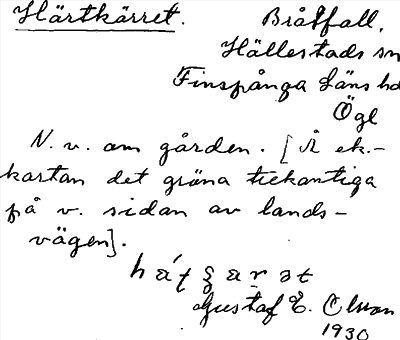 Härtkärret. Bråtfall,
Hällestads sn
Finspånga Läns hd
Ögl
N. v. om gården. [Å ek.-
kartan det gröna tiekantiga
på v. sidan av lands-
vägen].
Gustaf E. Olson
1930